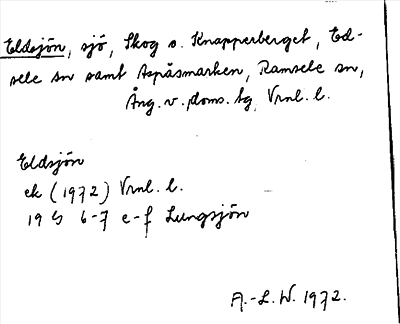 Eldsjön, sjö, Skog o. Knapperberget, Ed-
sele sn samt Aspåsmarken, Ramsele sn,
Ång. v. doms. tg, Vrnl. l.
Eldsjön
ek (1972) Vrnl. l.
19 G 6-7 e-f Lungsjön
A.-L. W. 1972.